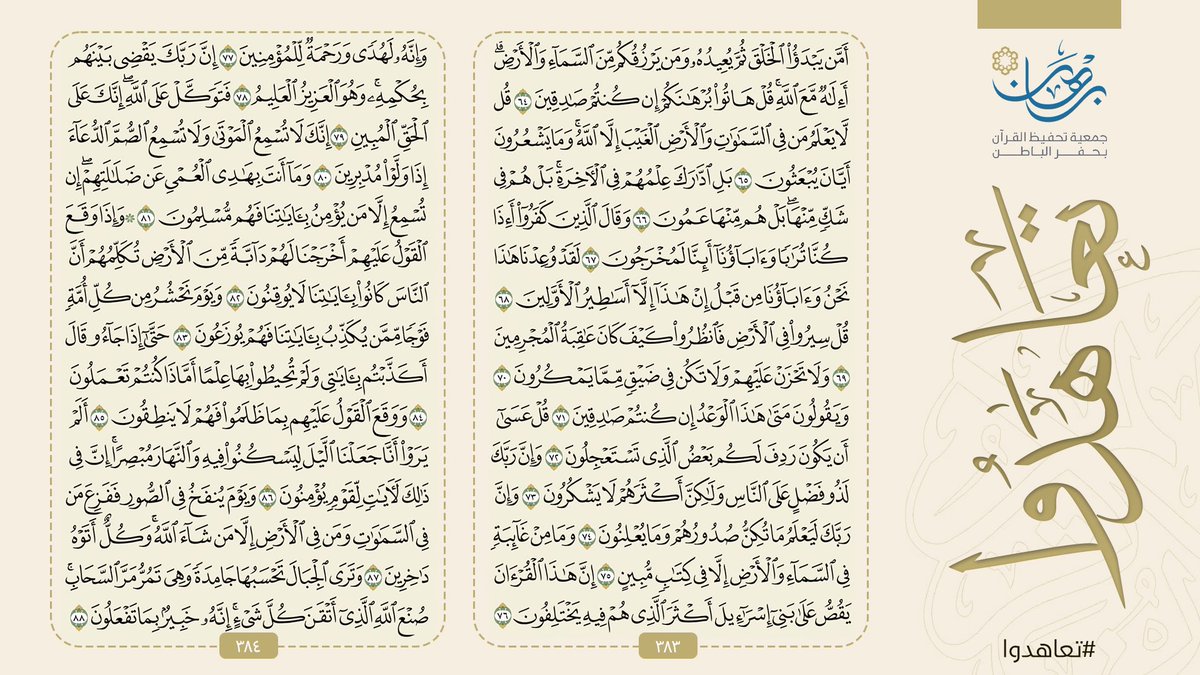 برهان
جمعية تحفيظ القرآن
بحفر الباطن
تعاهدوا
#تعاهدوا
أَمَّن يَبْدَؤُا۟ ٱلْخَلْقَ ثُمَّ يُعِيدُهُۥ وَمَن يَرْزُقُكُم مِّنَ ٱلسَّمَآءِ وَٱلْأَرْضِ ۗ
أَءِلَٰهٌ مَّعَ ٱللَّهِ ۚ قُلْ هَاتُوا۟ بُرْهَٰنَكُمْ إِن كُنتُمْ صَٰدِقِينَ ٦٤ قُل
لَّا يَعْلَمُ مَن فِى ٱلسَّمَٰوَٰتِ وَٱلْأَرْضِ ٱلْغَيْبَ إِلَّا ٱللَّهُ ۚ وَمَا يَشْعُرُونَ
أَيَّانَ يُبْعَثُونَ ٦٥ بَلِ ٱدَّٰرَكَ عِلْمُهُمْ فِى ٱلْءَاخِرَةِ ۚ بَلْ هُمْ فِى
شَكٍّ مِّنْهَا ۖ بَلْ هُم مِّنْهَا عَمُونَ ٦٦ وَقَالَ ٱلَّذِينَ كَفَرُوٓا۟ أَءِذَا
كُنَّا تُرَٰبًا وَءَابَآؤُنَآ أَئِنَّا لَمُخْرَجُونَ ٦٧ لَقَدْ وُعِدْنَا هَٰذَا
نَحْنُ وَءَابَآؤُنَا مِن قَبْلُ إِنْ هَٰذَآ إِلَّآ أَسَٰطِيرُ ٱلْأَوَّلِينَ ٦٨
قُلْ سِيرُوا۟ فِى ٱلْأَرْضِ فَٱنظُرُوا۟ كَيْفَ كَانَ عَٰقِبَةُ ٱلْمُجْرِمِينَ
٦٩ وَلَا تَحْزَنْ عَلَيْهِمْ وَلَا تَكُن فِى ضَيْقٍ مِّمَّا يَمْكُرُونَ ٧٠
وَيَقُولُونَ مَتَىٰ هَٰذَا ٱلْوَعْدُ إِن كُنتُمْ صَٰدِقِينَ ٧١ قُلْ عَسَىٰٓ
أَن يَكُونَ رَدِفَ لَكُم بَعْضُ ٱلَّذِى تَسْتَعْجِلُونَ ٧٢ وَإِنَّ رَبَّكَ
لَذُو فَضْلٍ عَلَى ٱلنَّاسِ وَلَٰكِنَّ أَكْثَرَهُمْ لَا يَشْكُرُونَ ٧٣ وَإِنَّ
رَبَّكَ لَيَعْلَمُ مَا تُكِنُّ صُدُورُهُمْ وَمَا يُعْلِنُونَ ٧٤ وَمَا مِنْ غَآئِبَةٍ
فِى ٱلسَّمَآءِ وَٱلْأَرْضِ إِلَّا فِى كِتَٰبٍ مُّبِينٍ ٧٥ إِنَّ هَٰذَا ٱلْقُرْءَانَ
يَقُصُّ عَلَىٰ بَنِىٓ إِسْرَٰٓءِيلَ أَكْثَرَ ٱلَّذِى هُمْ فِيهِ يَخْتَلِفُونَ ٧٦
٣٨٣
وَإِنَّهُۥ لَهُدًى وَرَحْمَةٌ لِّلْمُؤْمِنِينَ ٧٧ إِنَّ رَبَّكَ يَقْضِى بَيْنَهُم
بِحُكْمِهِۦ ۚ وَهُوَ ٱلْعَزِيزُ ٱلْعَلِيمُ ٧٨ فَتَوَكَّلْ عَلَى ٱللَّهِ ۖ إِنَّكَ عَلَى
ٱلْحَقِّ ٱلْمُبِينِ ٧٩ إِنَّكَ لَا تُسْمِعُ ٱلْمَوْتَىٰ وَلَا تُسْمِعُ ٱلصُّمَّ ٱلدُّعَآءَ
إِذَا وَلَّوْا۟ مُدْبِرِينَ ٨٠ وَمَآ أَنتَ بِهَٰدِى ٱلْعُمْىِ عَن ضَلَٰلَتِهِمْ ۖ إِن
تُسْمِعُ إِلَّا مَن يُؤْمِنُ بِـَٔايَٰتِنَا فَهُم مُّسْلِمُونَ ٨١ ۞ وَإِذَا وَقَعَ
ٱلْقَوْلُ عَلَيْهِمْ أَخْرَجْنَا لَهُمْ دَآبَّةً مِّنَ ٱلْأَرْضِ تُكَلِّمُهُمْ أَنَّ
ٱلنَّاسَ كَانُوا۟ بِـَٔايَٰتِنَا لَا يُوقِنُونَ ٨٢ وَيَوْمَ نَحْشُرُ مِن كُلِّ أُمَّةٍ
فَوْجًا مِّمَّن يُكَذِّبُ بِـَٔايَٰتِنَا فَهُمْ يُوزَعُونَ ٨٣ حَتَّىٰٓ إِذَا جَآءُو قَالَ
أَكَذَّبْتُم بِـَٔايَٰتِى وَلَمْ تُحِيطُوا۟ بِهَا عِلْمًا أَمَّاذَا كُنتُمْ تَعْمَلُونَ
٨٤ وَوَقَعَ ٱلْقَوْلُ عَلَيْهِم بِمَا ظَلَمُوا۟ فَهُمْ لَا يَنطِقُونَ ٨٥ أَلَمْ
يَرَوْا۟ أَنَّا جَعَلْنَا ٱلَّيْلَ لِيَسْكُنُوا۟ فِيهِ وَٱلنَّهَارَ مُبْصِرًا ۚ إِنَّ فِى
ذَٰلِكَ لَءَايَٰتٍ لِّقَوْمٍ يُؤْمِنُونَ ٨٦ وَيَوْمَ يُنفَخُ فِى ٱلصُّورِ فَفَزِعَ مَن
فِى ٱلسَّمَٰوَٰتِ وَمَن فِى ٱلْأَرْضِ إِلَّا مَن شَآءَ ٱللَّهُ ۚ وَكُلٌّ أَتَوْهُ
دَٰخِرِينَ ٨٧ وَتَرَى ٱلْجِبَالَ تَحْسَبُهَا جَامِدَةً وَهِىَ تَمُرُّ مَرَّ ٱلسَّحَابِ ۚ
صُنْعَ ٱللَّهِ ٱلَّذِىٓ أَتْقَنَ كُلَّ شَىْءٍ ۚ إِنَّهُۥ خَبِيرٌۢ بِمَا تَفْعَلُونَ ٨٨
٣٨٤